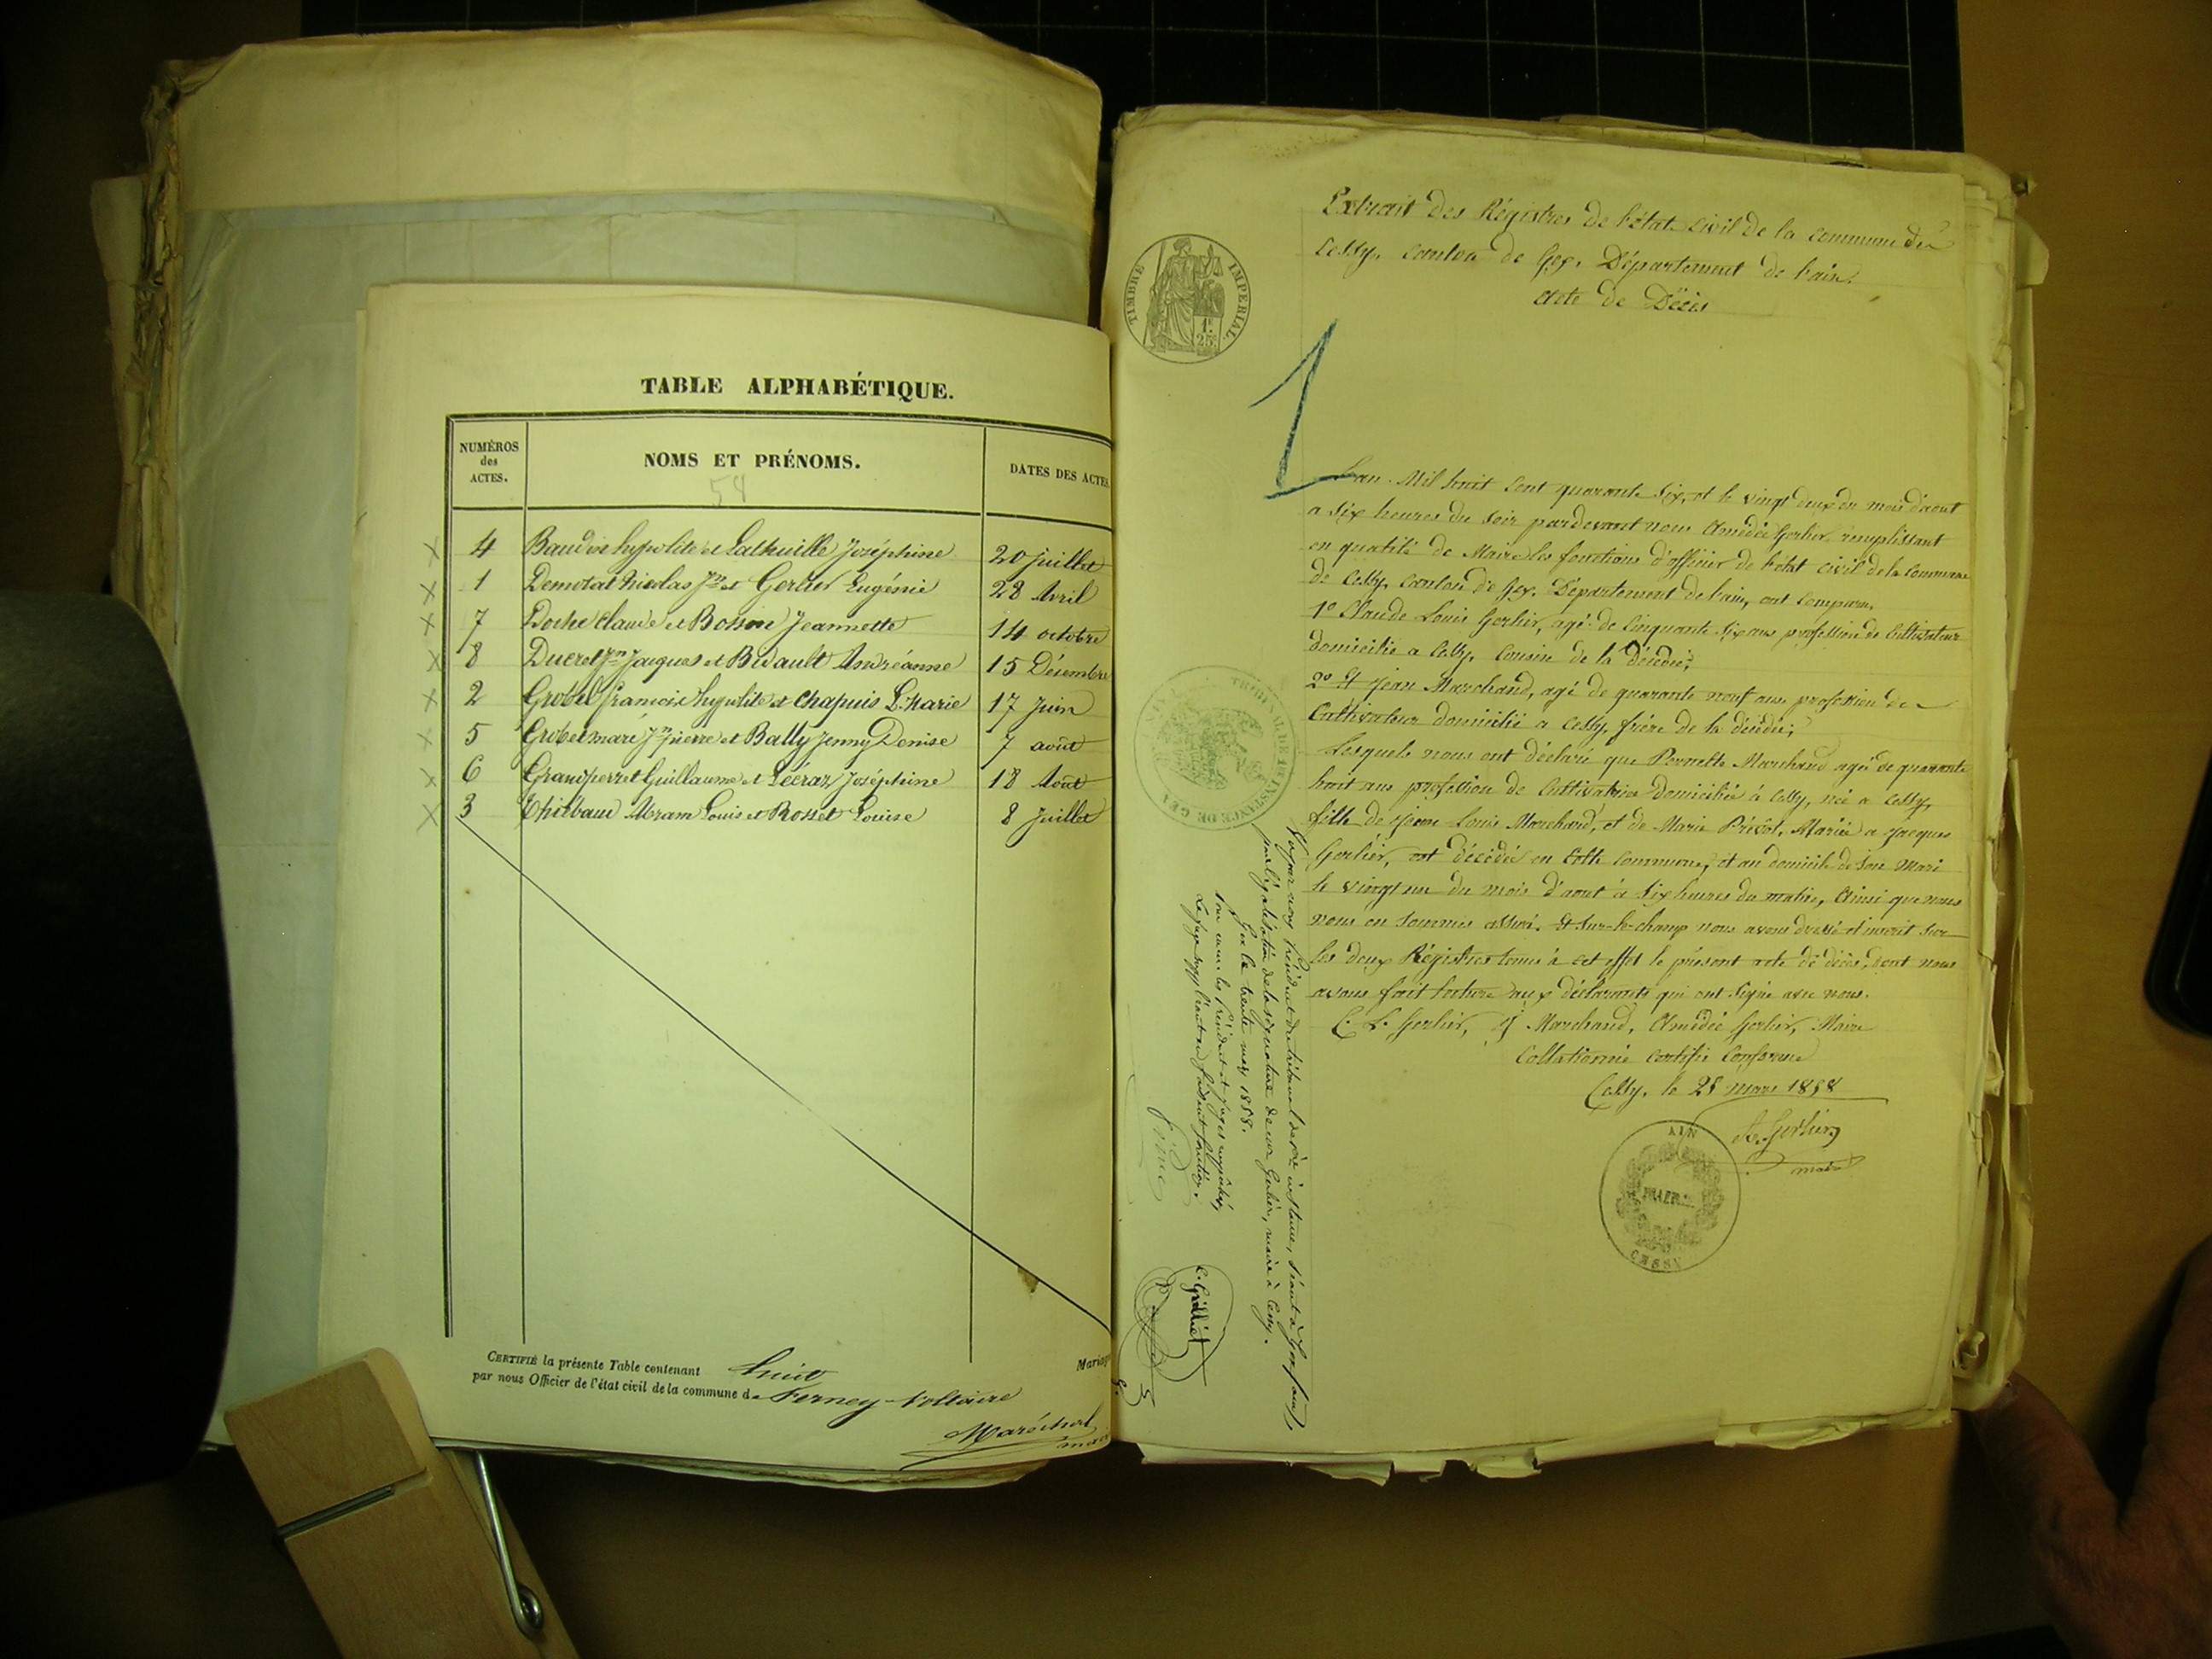 TABLE ALPHABÉTIQUE.
NUMÉROS
des
ACTES.
NOMS ET PRÉNOMS.
DATES DES ACTES
58
4 Baudin hypolite et Lathuille Joséphine 20 juillet
1 Demorat Nicolas Jn et Gerlier Eugénie 28 Avril
7 Doche Claude et Bosson Jeannette 14 octobre
8 Ducret Jn Jacques et Bidault Andréanne 15 Décembre
2 Grobel françois hypolite et Chapuis L. Marie 17 Juin
5 Jn pierre et Bally Jenny Denise 7 août
6 Grandperret Guillaume et Joséphine 18 Août
3 Thiébaud Abram Louis et Rosset Louise 8 Juillet
CERTIFIÉ la présente Table contenant huit Mariag
par nous Officier de l'état civil de la commune de Ferney-Voltaire
Maréchal
mai
TIMBRE IMPERIAL
1f.
25c.
Extrait des Régistres de l'état civil de la commune de
Cessy, canton de Gex, Département de l'ain.
Acte de Décès
1
L'an Mil huit cent quarante six, et le vingt deux du mois d'aout
a six heures du soir pardevant nous Amédée Gerlier remplissant
en qualité de Maire les fonctions d'officier de l'état civil de la Commune
de Cessy, canton de Gex, Département de l'ain, ont comparu.
1° Claude Louis Gerlier, agé de cinquante six ans profession de Cultivateur
domicilié a Cessy, Cousin de la décédée;
2° Et Jean Marchand, agé de quarante neuf ans profession de
Cultivateur domicilié a Cessy, frère de la décédée;
Lesquels nous ont déclaré que Pernette Marchand agée de quarante
huit ans profession de Cultivatrice domiciliée à Cessy, née a Cessy,
fille de Jean Louis Marchand, et de Marie Prévot, Mariée a Jacques
Gerlier, est décédée en cette commune, et au domicile de son Mari
le vingt un du mois d'aout à six heures du matin, Ainsi que nous
nous en sommes assuré. Et sur-le-champ nous avons dressé et inscrit sur
les deux Régistres tenus à cet effet le présent acte de décès, dont nous
avons fait lecture aux déclarants qui ont signé avec nous.
C. L. Gerlier, J Marchand, Amédée Gerlier, Maire
Collationné certifié conforme
Cessy, le 28 mars 1858
A. Gerlier
maire
AIN
MAIRIE
CESSY
TRIBUNAL DE 1re INSTANCE DE GEX
Vu par nous Président du tribunal de 1re instance, séant à Gex
pour légalisation de la signature de Mr Gerlier, maire à Cessy.
Gex le trente mars 1858.
Pour Mr le Président et juges empêchés,
Le juge suppléant en faisant fonction.
C. Grilliet